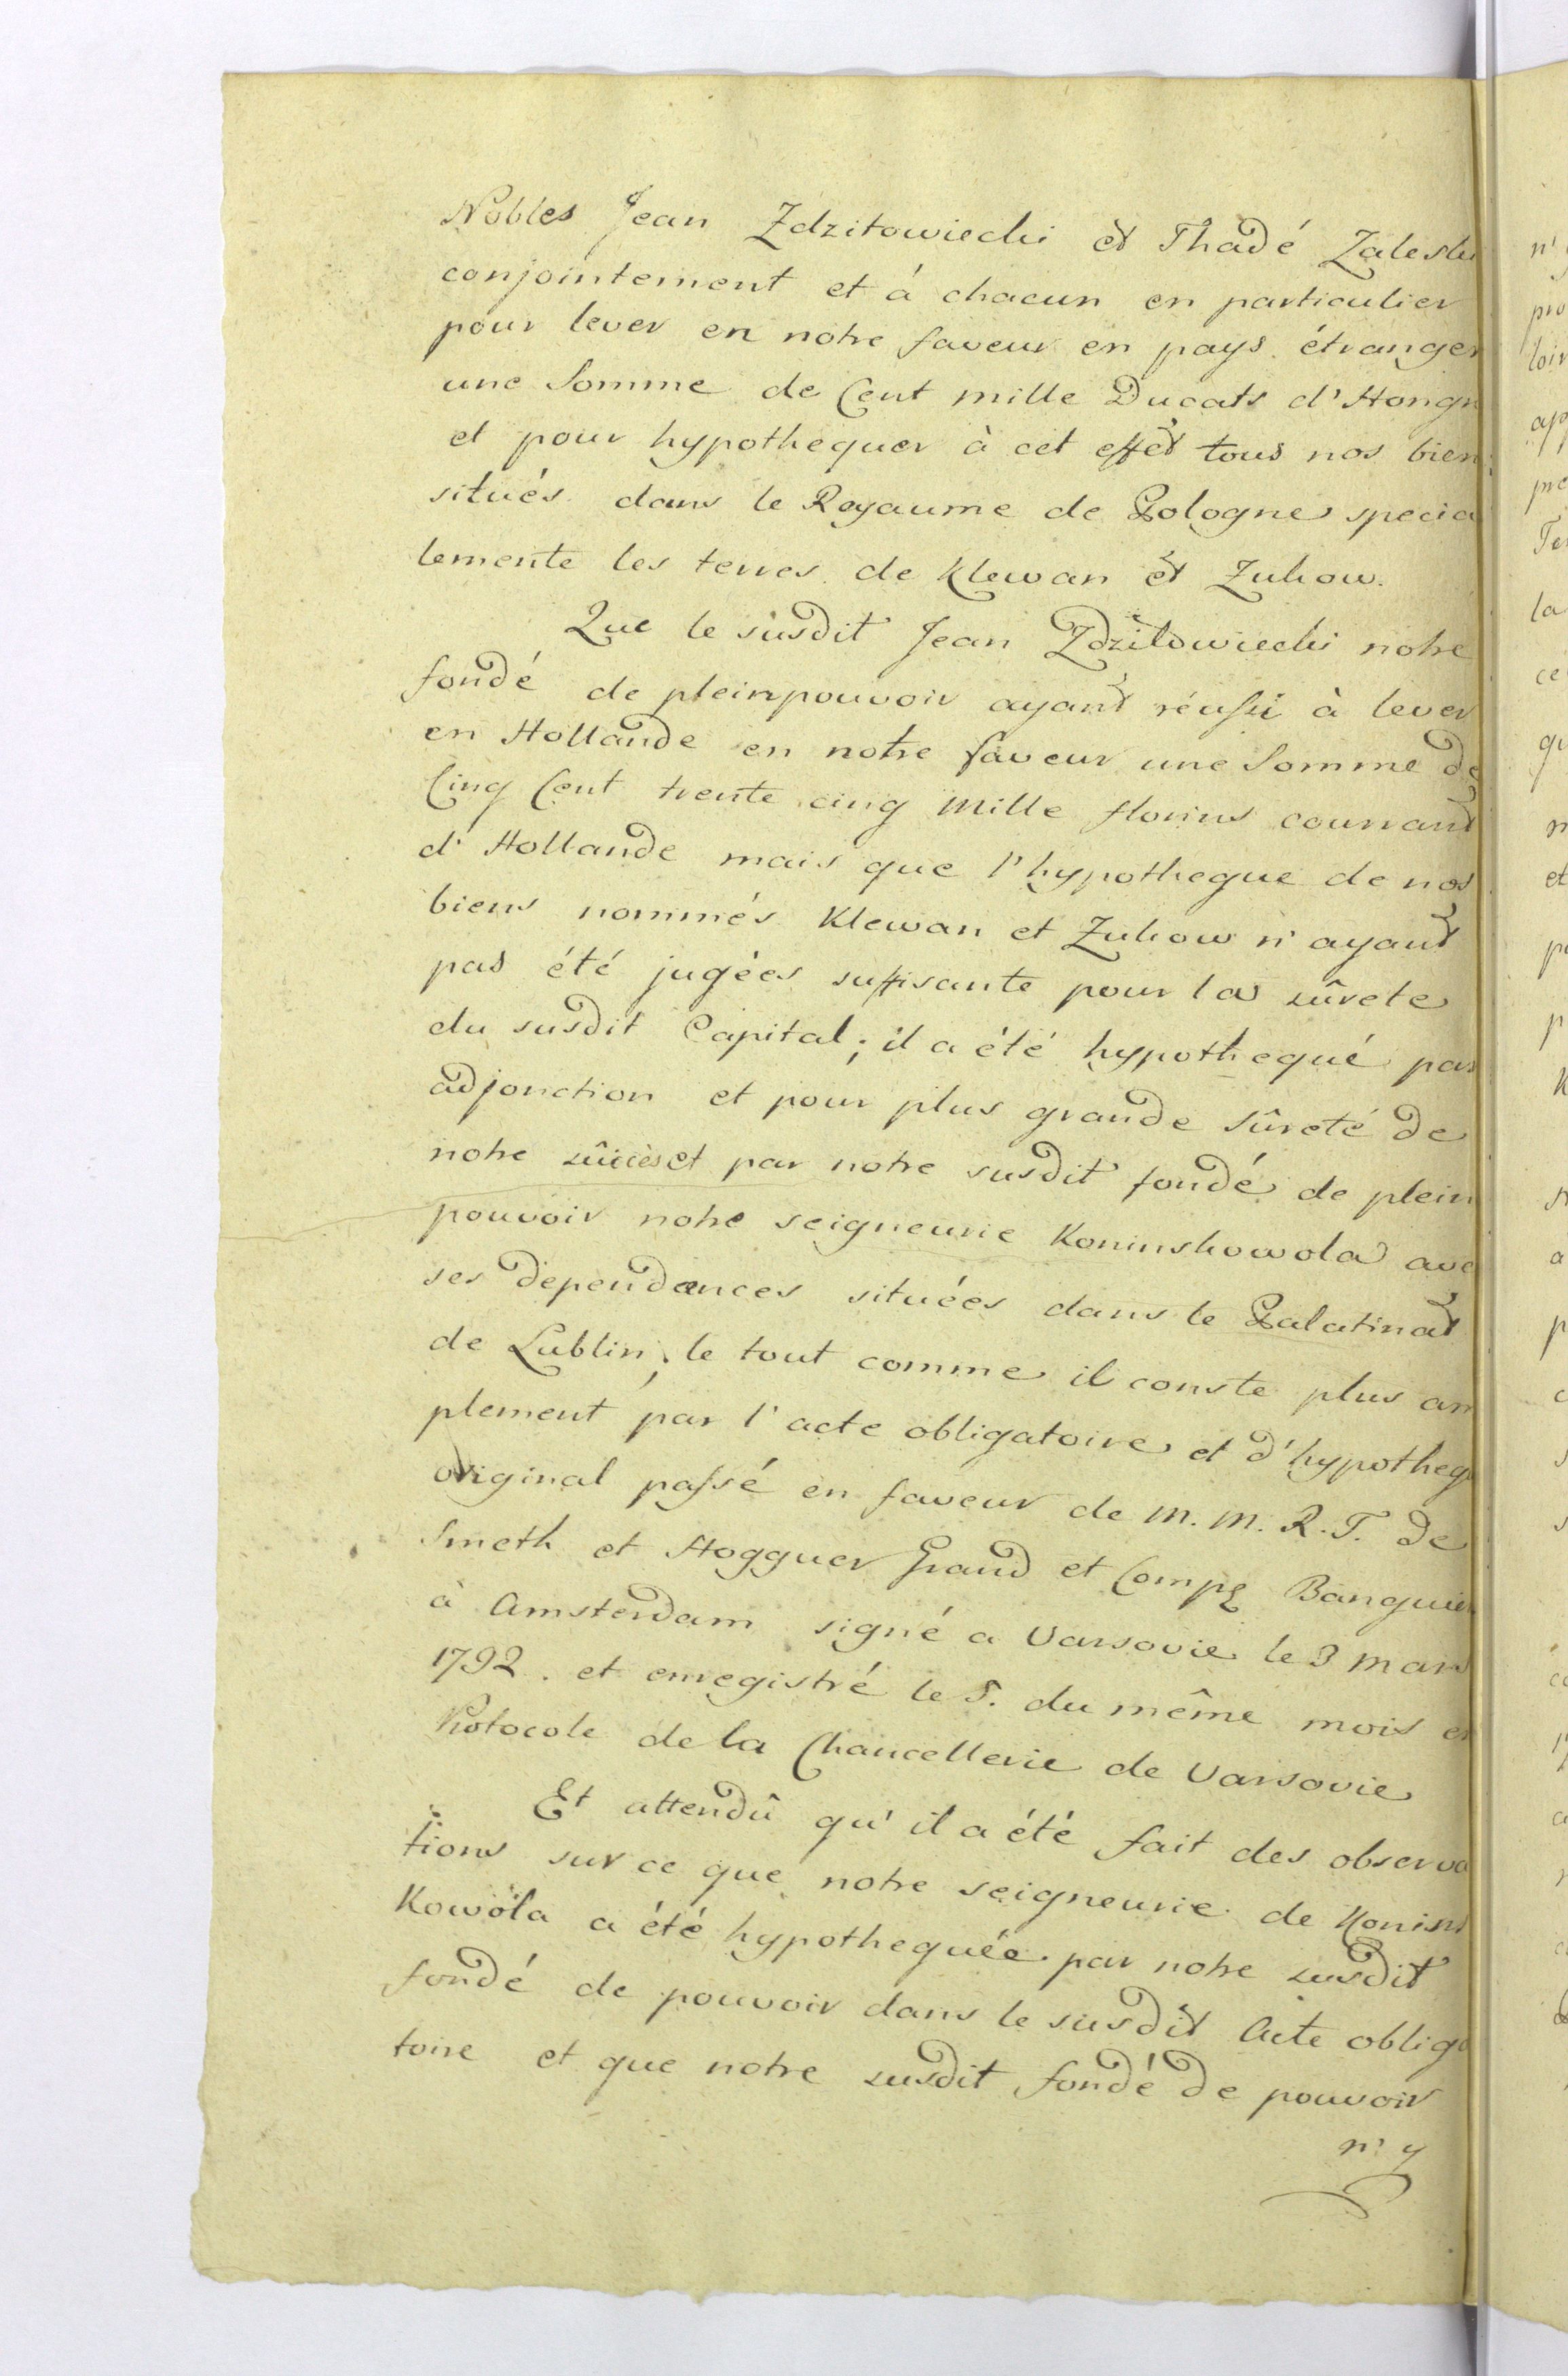 Nobles Jean Zdzitowiecki et Thadé Zaleski
conjointement et à chacun en particulier
pour lever en notre faveur en pays étranger
une Somme de Cent mille Ducats d'Hongr
et pour hypothequer à cet effet tous nos bien
situés dans le Royaume de Pologne specia
lemente les terres de Klewan et Zukow.
Que le susdit Jean Zdzitowiecki notre
fondé de pleinpouvoir ayant réussi à lever
en Hollande en notre faveur une Somme de
Cinq Cent trente cinq Mille florins courrant
d'Hollande mais que l'hypotheque de nos
biens nommés Klewan et Zukow n'ayant
pas été jugées suffisante pour la sûrete
du susdit Capital; il a été hypothequé par
adjonction et pour plus grande sûreté de
notre et par notre susdit fondé de plein
pouvoir notre seigneurie Koninskowola ave
ses dependances situées dans le Palatinat
de Lublin; le tout comme il conste plus am
plement par l'acte obligatoire et d'hypotheq
original passé en faveur de M. M. R. T. De
Smeth et Hogguer Grand et Comp Banquier
à Amsterdam signé a Varsovie le 3 mars
1792. et enregistré le 5. du même mois en
Protocole de la Chancellerie de Varsovie
Et attendû qu'il a été fait des observa
tions sur ce que notre seigneurie de Konins
Kowola a été hypothequée par notre susdit
fondé de pouvoir dans le susdit Acte obliga
toire et que notre susdit fondé de pouvoir
n'y